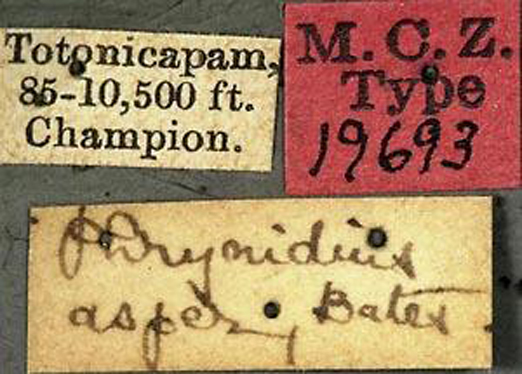 Totonicapam,
85-10,500 ft.
Champion.
M. C. Z.
Type
19693
Phrynidius
asper, Bates.